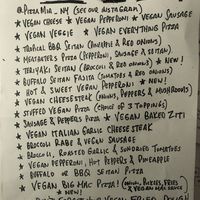 @ Pizza Mia, NY (see our Instagram)
* Vegan Cheese * Vegan Pepperoni * Vegan Sausage
* Vegan Veggie * Vegan Everything Pizza
* Tropical BBQ Seitan (Pineapple & Red Onions)
* Meateaters Pizza (Pepperoni, Sausage & Seitan)
* Teriyaki Seitan (Broccoli & Red Onions) * New!
* Buffalo Seitan Fajita (Tomatoes & Red Onions)
* Hot & Sweet Vegan Pepperoni * New!
* Vegan Cheesesteak (Onions, Peppers, & Mushrooms)
* Stuffed Vegan Pizza (Choice of 3 Toppings)
* Sausage & Peppers Pizza * Vegan Baked Ziti
* Vegan Italian Garlic Cheese Steak
* Broccoli Rabe & Vegan Sausage
* Broccoli, Roasted Garlic & Sundried Tomatoes
* Vegan Pepperoni, Hot Peppers & Pineapple
* Buffalo or BBQ Seitan Pizza
* Vegan Big Mac Pizza! (Onions, Pickles, Fries & Vegan Mac Sauce)
* New!
Vegan Fried Dough